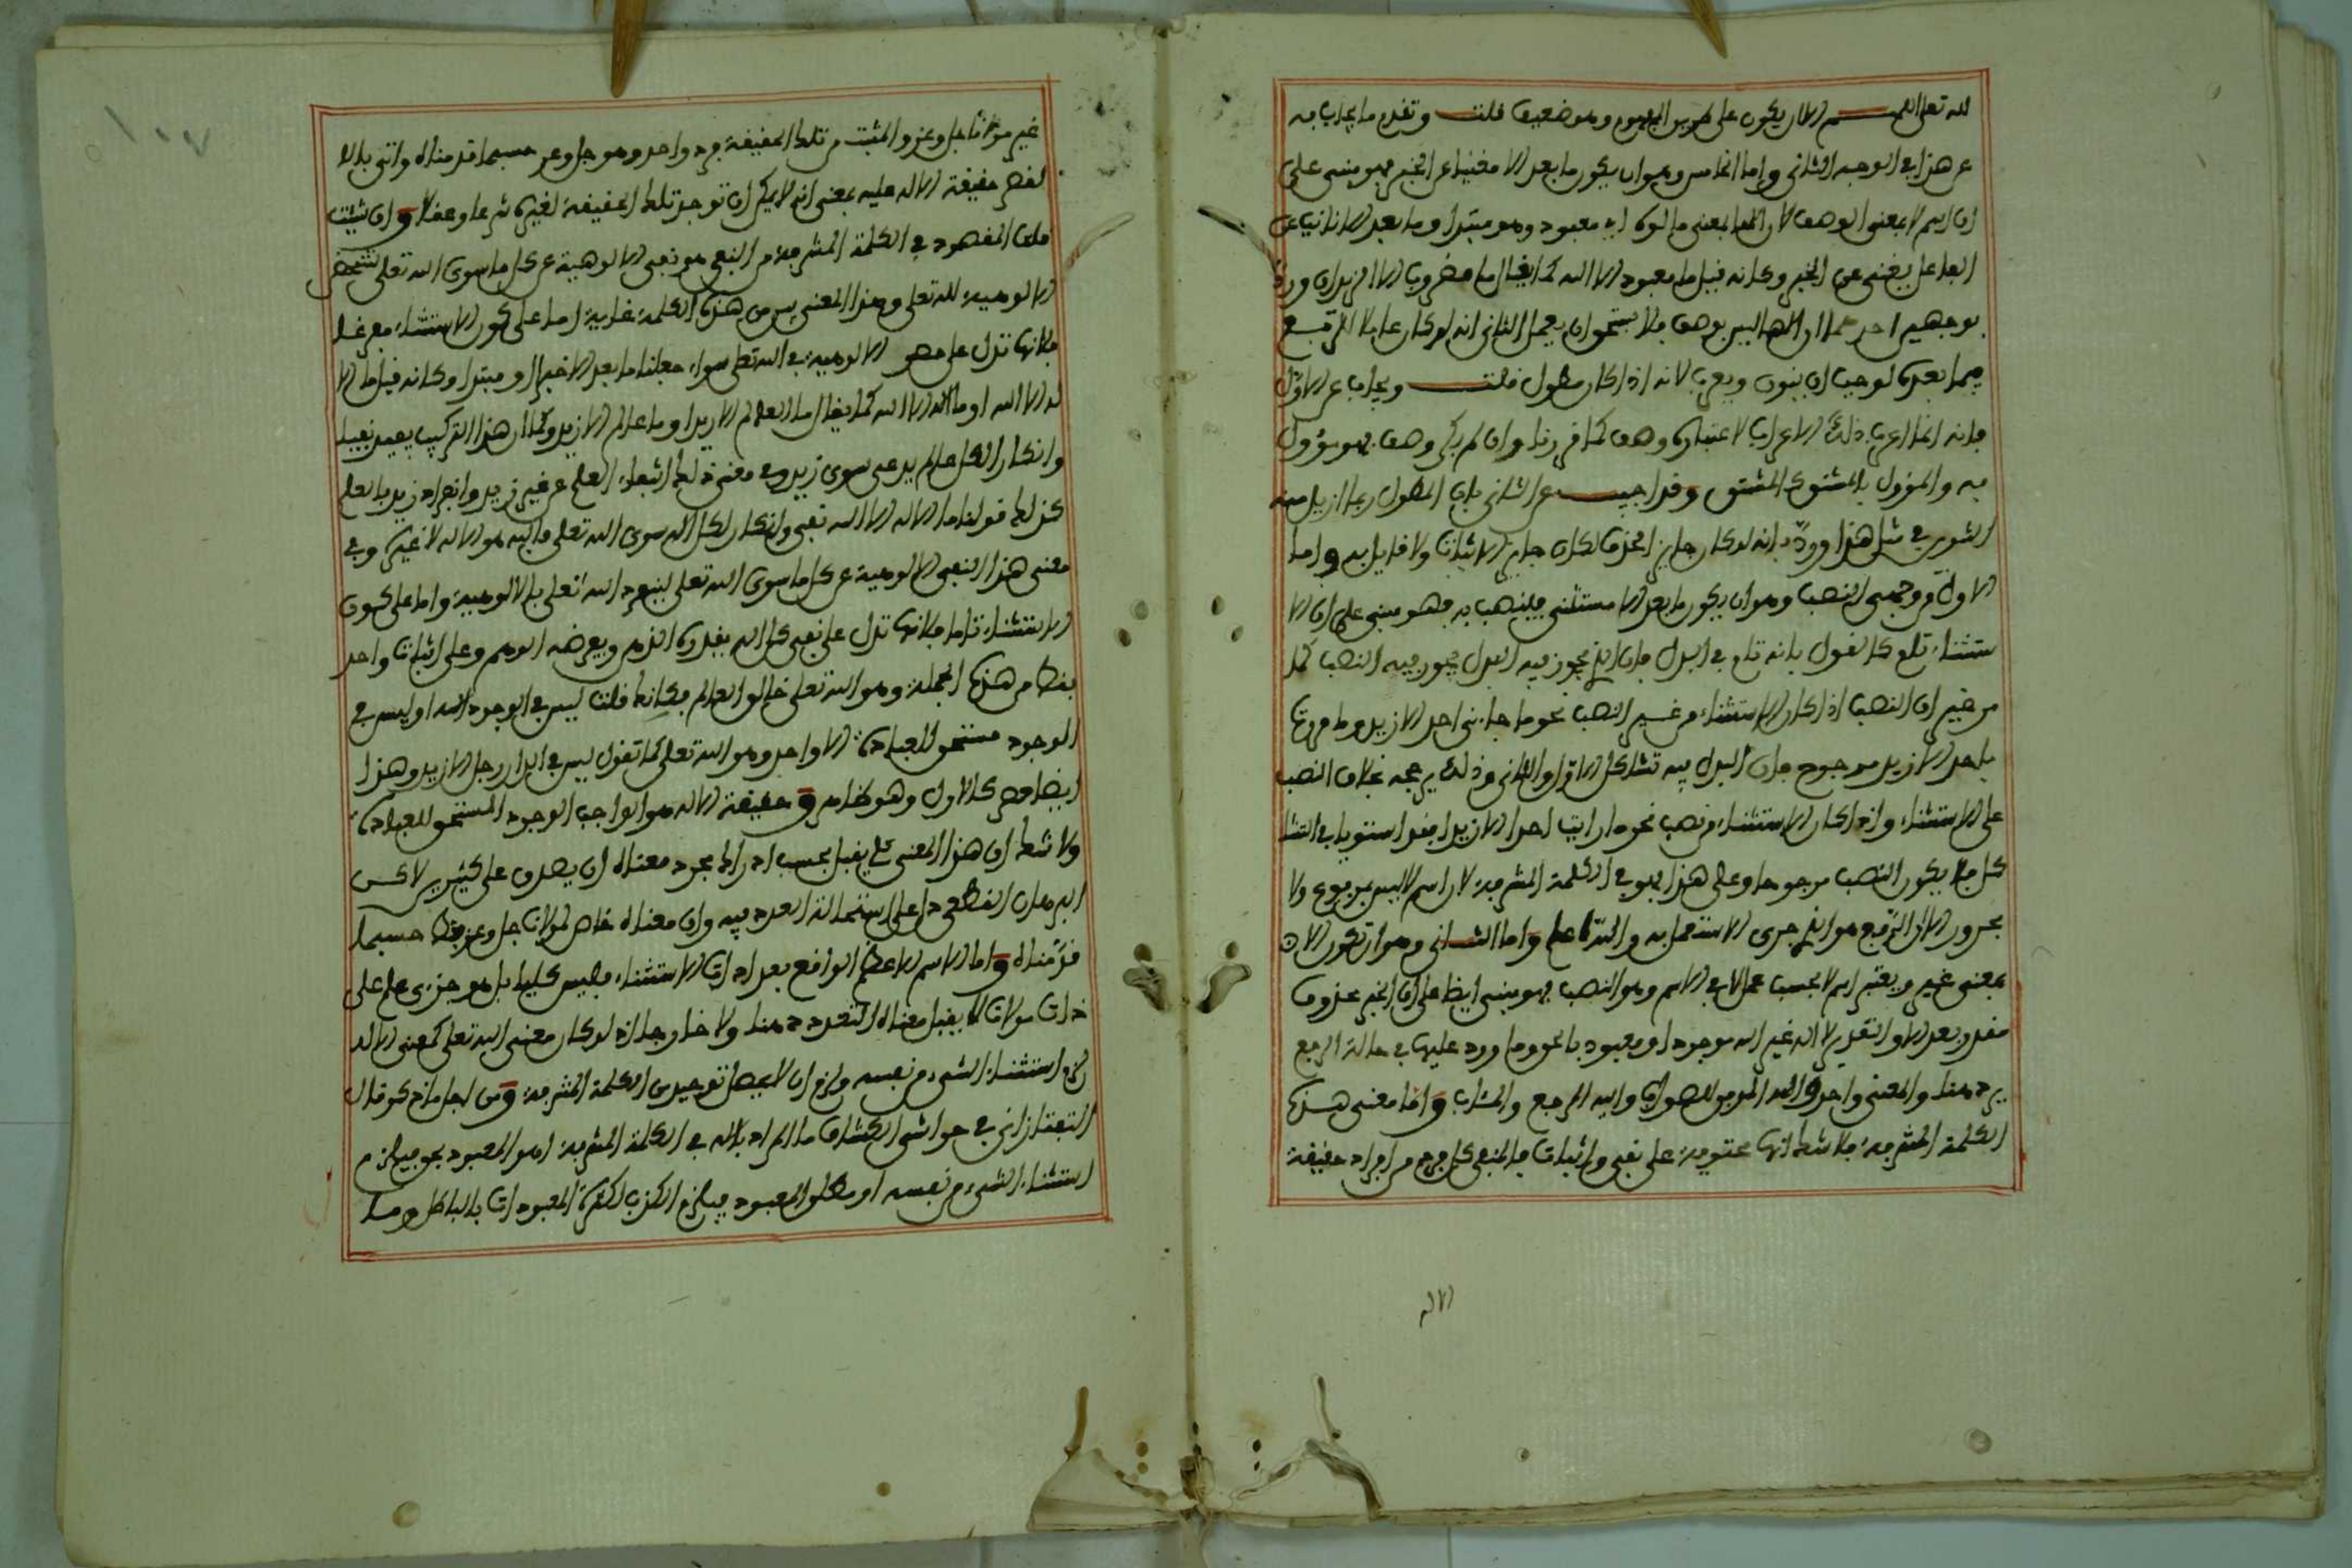 لله تعلى اللهم الا ان يكون على طريق المفهوم وهو ضعيف قلت وتقدم ما يجاب به
عن هذا في الوجه الثاني واما الخامس وهو ان يكون ما بعد الا مغنيا عن الخبر فهو مبني على
ان اسم لا بمعنى الوصف لان الها بمعنى مالوه اي معبود وهو مبتدا وما بعد الا نايب عن
الفاعل يغني عن الخبر وكانه قيل ما معبود الا الله كما يقال ما مضروب الا الزيدان ورد
بوجهين احدهما ان الها ليس بوصف فلا يستحق ان يعمل الثاني انه لو كان عاملا الرفع
فيما بعده لوجب ان ينون ويعرب لانه اذا كان مطول قلت ويجاب عن الاول
فانه انما اعرب ذلك الاعراب لاعتباره وصف كما قررنا وان لم يكن وصف فهو مؤول
به والمؤول بالمشتق كالمشتق وقد اجيب عن الثاني بان المطول ربما ازيل منه
التنوين في مثل هذا ورد بانه لو كان جايز الحذف لكان جايز الاثبات ولا قايل به واما
الاول من وجهي النصب وهو ان يكون ما بعد الا مستثنى فينصب به فهو مبني على ان الا
ستثناء تام كالقول بانه تابع في البدل فان الذي يجوز فيه البدل يجوز فيه النصب كما
من خير ان النصب اذا كان الاستثناء من غير النصب نحو ما جاءني احد الا زيد وما مررت
باحد الا زيد مرجوح فان البدل فيه تشاكل الاول والثاني وذلك يرجحه بخلاف النصب
على الاستثناء واذا كان الاستثناء من نصب نحو ما رايت احدا الا زيدا فقد استويا في التشا
كل فلا يكون النصب مرجوحا وعلى هذا فهو في الكلمة المشرفة لان اسم لا ليس بمرفوع ولا
مجرور الا ان الرفع هو الذي جرى الاستعمال به والله اعلم واما الثاني وهو ان تكون الا
بمعنى غير ويعتبر اسم لا بحسب عملها في الاسم وهو النصب فهو مبني ايضا على ان الخبر محذوف
مقدر بعد الا والتقدير لا اله غير الله موجود او معبود بالحق وما ورد عليها في حالة الرفع
يرد هنا والمعنى واحد والله الموفق للصواب واليه المرجع والمئاب واما معنى هذه
الكلمة المشرفة فلا شك انها محتوية على نفي واثبات فالمنفي كل فرد من افراد حقيقة
الاله
١٠٧
غير مولانا جل وعز والمثبت من تلك الحقيقة فرد واحد وهو جل وعز حسبما قدمناه واتي بالا
لقصر حقيقة الاله عليه بمعنى انه لا يمكن ان توجد تلك الحقيقة لغيره شرعا وعقلا وان شئت
قلت المقصود في الكلمة المشرفة من النفي هو نفي الالوهية عن كل ما سوى الله تعلى لتنحصر
الالوهية لله تعلى وهذا المعنى يس من هذه الكلمة غاية اما على كون الاستثناء مفرغا
فلانها تدل على حصر الالوهية في الله تعلى سواء جعلنا ما بعد الا خبرا او مبتدا وكانه قيل ما الا
له الا الله او ما الله الا الله كما يقال ما العالم الا زيد او ما عالم الا زيد وكما ان هذا التركيب يفيد نفيا
وانكارا لكل عالم يدعى سوى زيد وفي معنى ذلك انتفاء العلم عن غير زيد وانفراد زيد بالعلم
كذلك قولنا ما الاله الا الله نفي وانكار لكل اله سوى الله تعلى فاليه هو الاله لا غير وفي
معنى هذا النفي الالوهية عن كل ما سوى الله تعلى لينفرد الله تعلى بالالوهية واما على كون
الاستثناء تاما فلانها تدل على نفي كل اله يقدره الذهن ويفرضه الوهم وعلى اثبات واحد
فقط من هذه الجملة وهو الله تعلى خالق العالم فكانك قلت ليس في الوجود اله او ليس في
الوجود مستحق للعبادة الا واحد وهو الله تعلى كما تقول ليس في الدار رجل الا زيد وهذا
ايضا حصر كالاول وهو ظاهر وحقيقة الاله هو الواجب الوجود المستحق للعبادة
ولا شك ان هذا المعنى كلي يقبل بحسب ادراك مجرد معناه ان يصدق على كثيرين لاكن
البرهان القطعي دل على استحالة التعدد فيه وان معناه خاص لمولانا جل وعز فقط حسبما
قدمناه واما الاسم الاعظم الواقع بعد اداة الاستثناء فليس كليا بل هو جزءي علم على
ذات مولانا لا يقبل معناه التعدد ذهنا ولا خارجا اذ لو كان معنى الله تعلى كمعنى الاله
لزم استثناء الشيء من نفسه ولزم ان لا يحصل توحيد من الكلمة المشرفة ومن اجل ما ذكر قال
التفتازاني في حواشي الكشاف ما المراد بالاله في الكلمة المشرفة اهو المعبود بحق فيلزم
استثناء الشيء من نفسه او مطلق المعبود فيلزم الكذب لكثرة المعبودات بالباطل وما